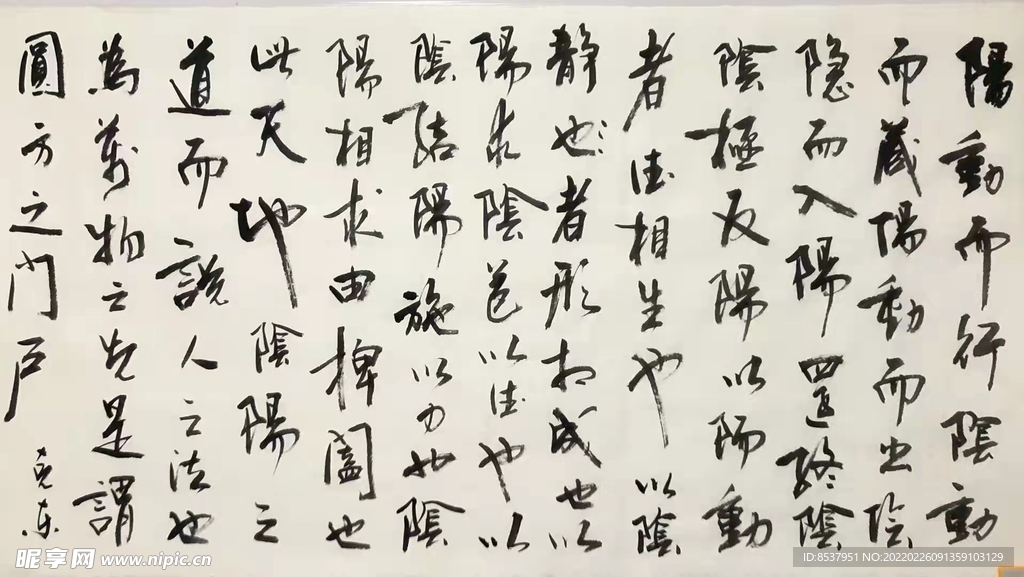 陽動而行陰動
而藏陽動而出陰
隐而入陽還終陰
陰極反陽以陽動
者德相生也以陰
静也者形相成也以
陽求陰苞以德也以
陰結陽施以力也陰
陽相求由捭闔也
此天地陰陽之
道而說人之法也
為萬物之先是謂
圓方之門户
克東
昵享网 www.nipic.cn
ID:8537951 NO:20220226091359103129